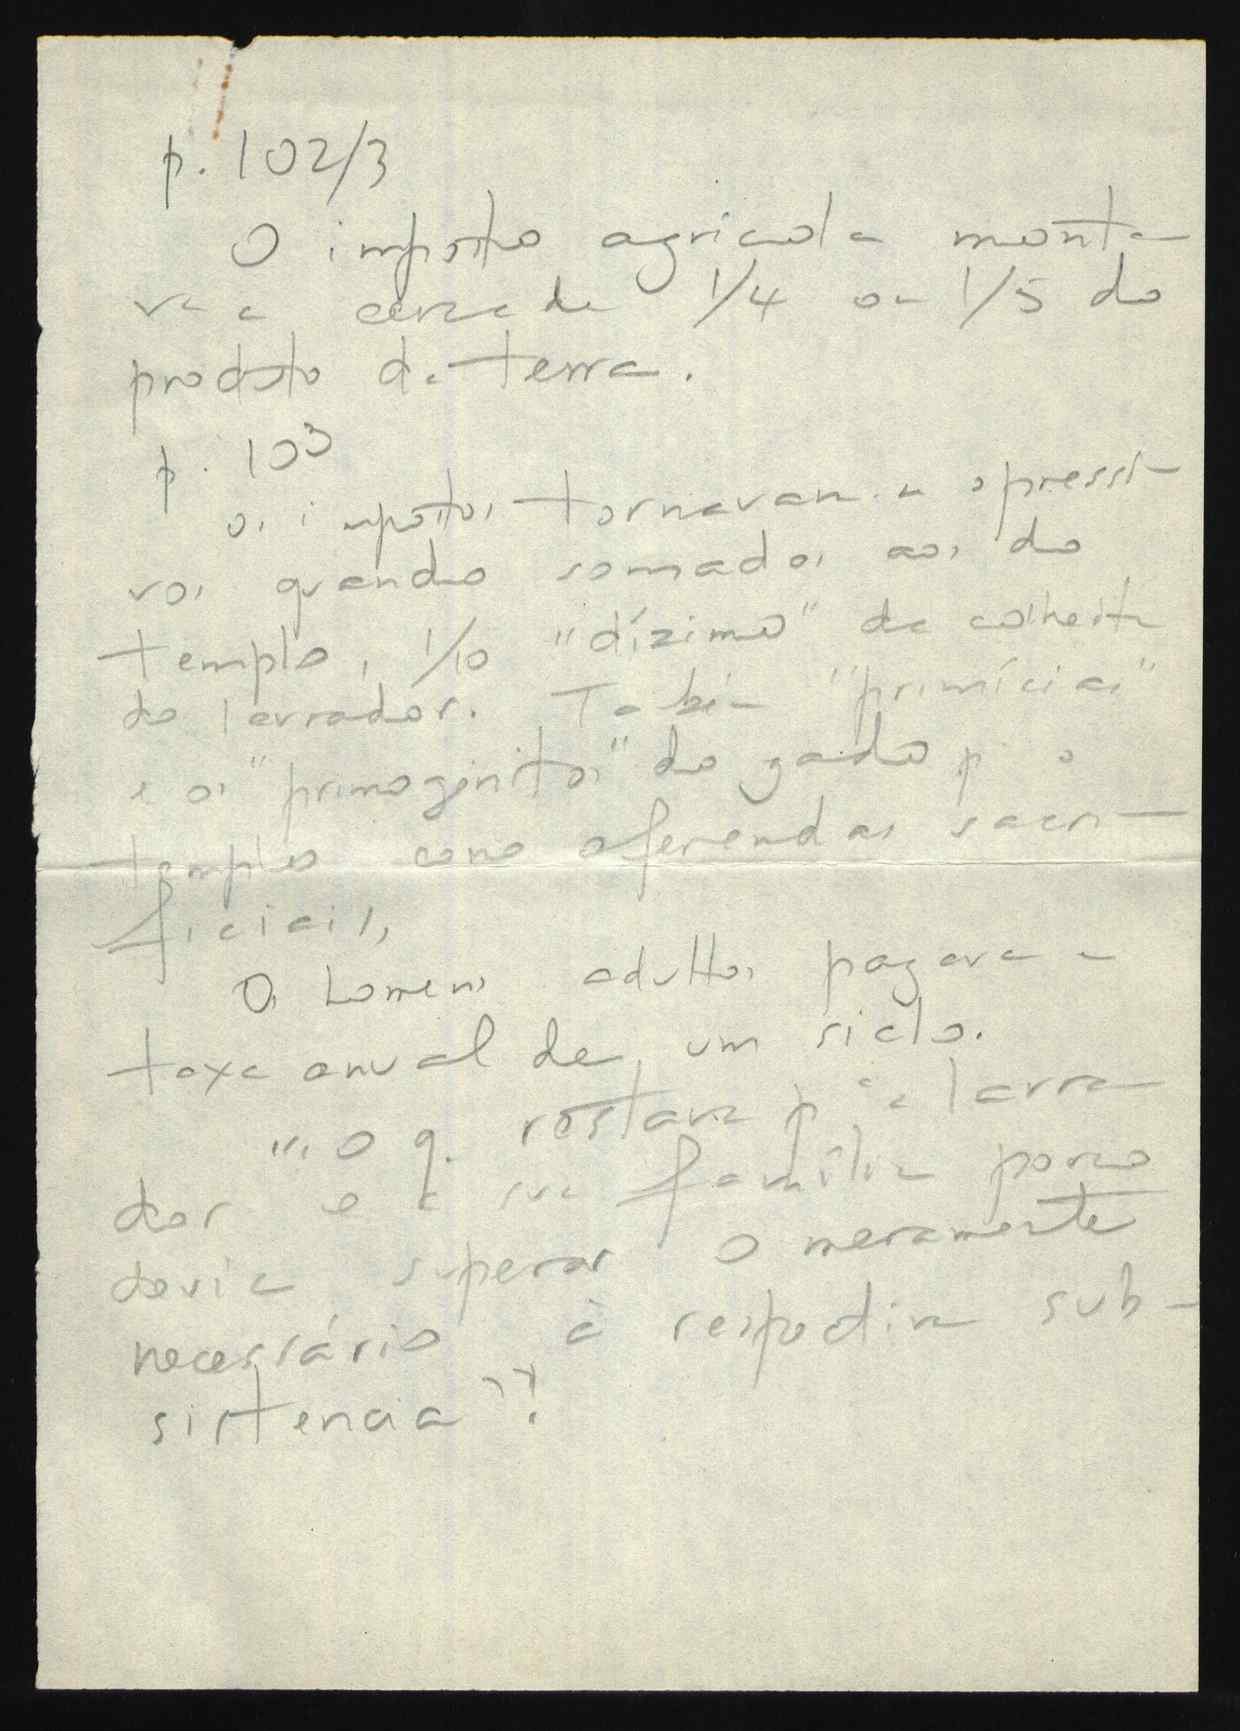 p. 102/3
O imposto agrícola monta
va a cerca de 1/4 ou 1/5 do
produto da terra.
p. 103
Os impostos tornavam-se opressi-
vos quando somados aos do
templo, 1/10 "dízimo" da colheita
do lavrador. Tabém "primícias"
e os "primogênitos" do gado p o
templo como oferendas sacri-
ficiais,
Os homens adultos pagava a
taxa anual de um siclo.
"... O q. restava pª a lavra
dor e a sua família pouco
devia superar o meramente
necessário à respectiva sub-
sistencia"!